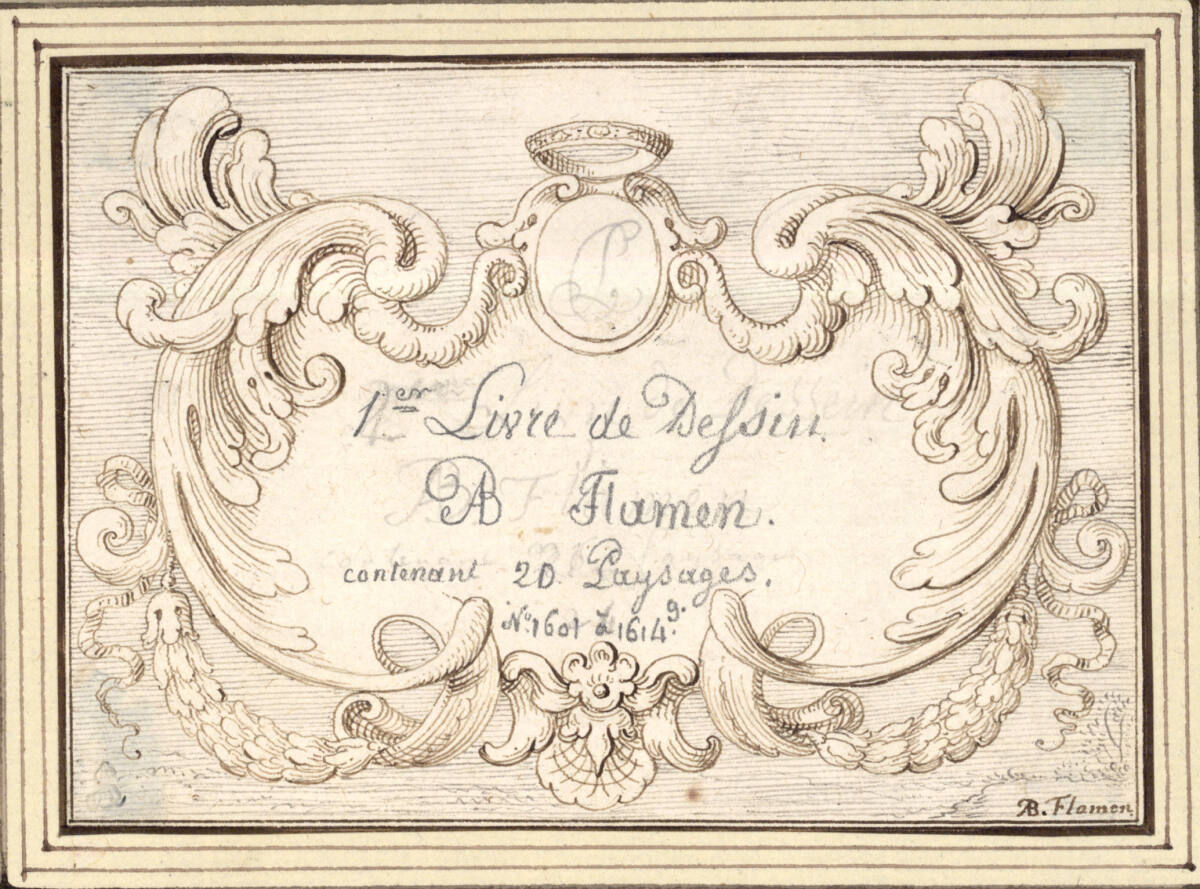 1er Livre de Dessin.
AB Flamen.
contenant 20 Paysages.
No. 1601 à 1614 9.
AB. Flamen